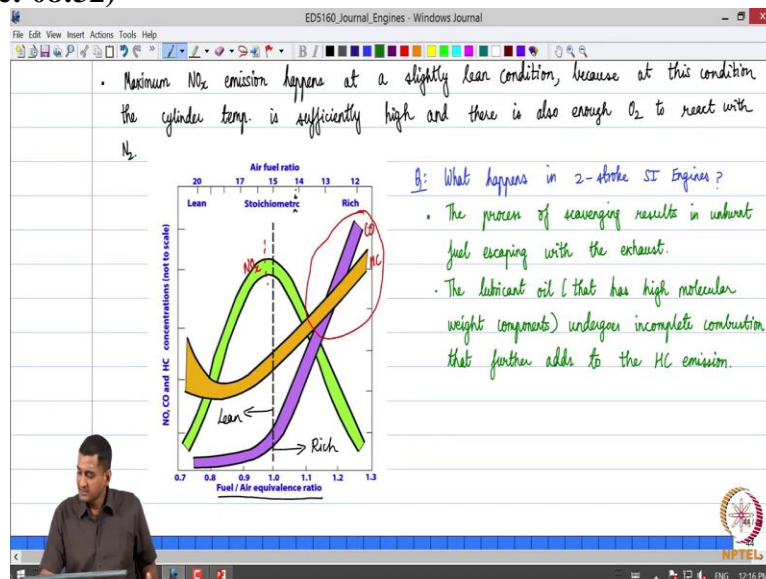 ED5160_Journal_Engines - Windows Journal
File Edit View Insert Actions Tools Help
• Maximum NOx emission happens at a slightly lean condition, because at this condition
the cylinder temp. is sufficiently high and there is also enough O2 to react with
N2.
Air fuel ratio
20 17 15 14 13 12
Lean Stoichiometrc Rich
NO, CO and HC concentrations (not to scale)
NOx
CO
HC
Lean
Rich
0.7 0.8 0.9 1.0 1.1 1.2 1.3
Fuel / Air equivalence ratio
Q: What happens in 2-stroke SI Engines?
• The process of scavenging results in unburnt
fuel escaping with the exhaust.
• The lubricant oil (that has high molecular
weight components) undergoes incomplete combustion
that further adds to the HC emission.
NPTEL
ENG 12:16 P